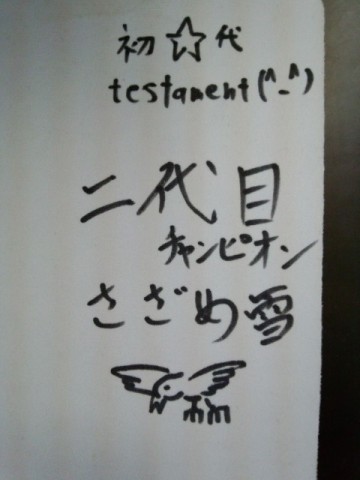 初☆代
testament(^-^)
二代目
チャンピオン
さざめ雪